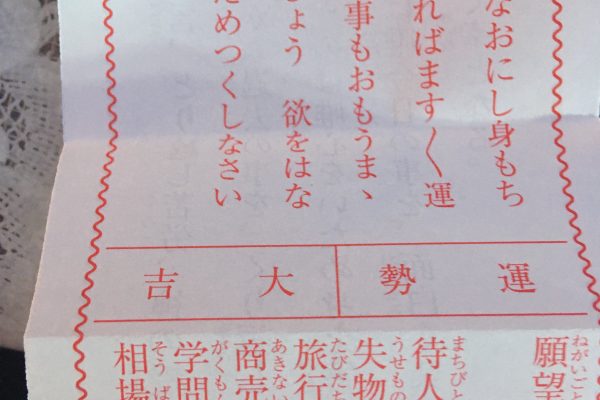 なおにし身もち
ればます〱運
事もおもうまゝ
ょう 欲をはな
ためつくしなさい
運勢
大吉
願望
ねがいごと
待人
まちびと
失物
うせもの
旅行
たびだち
商売
あきない
学問
がくもん
相場
そうば